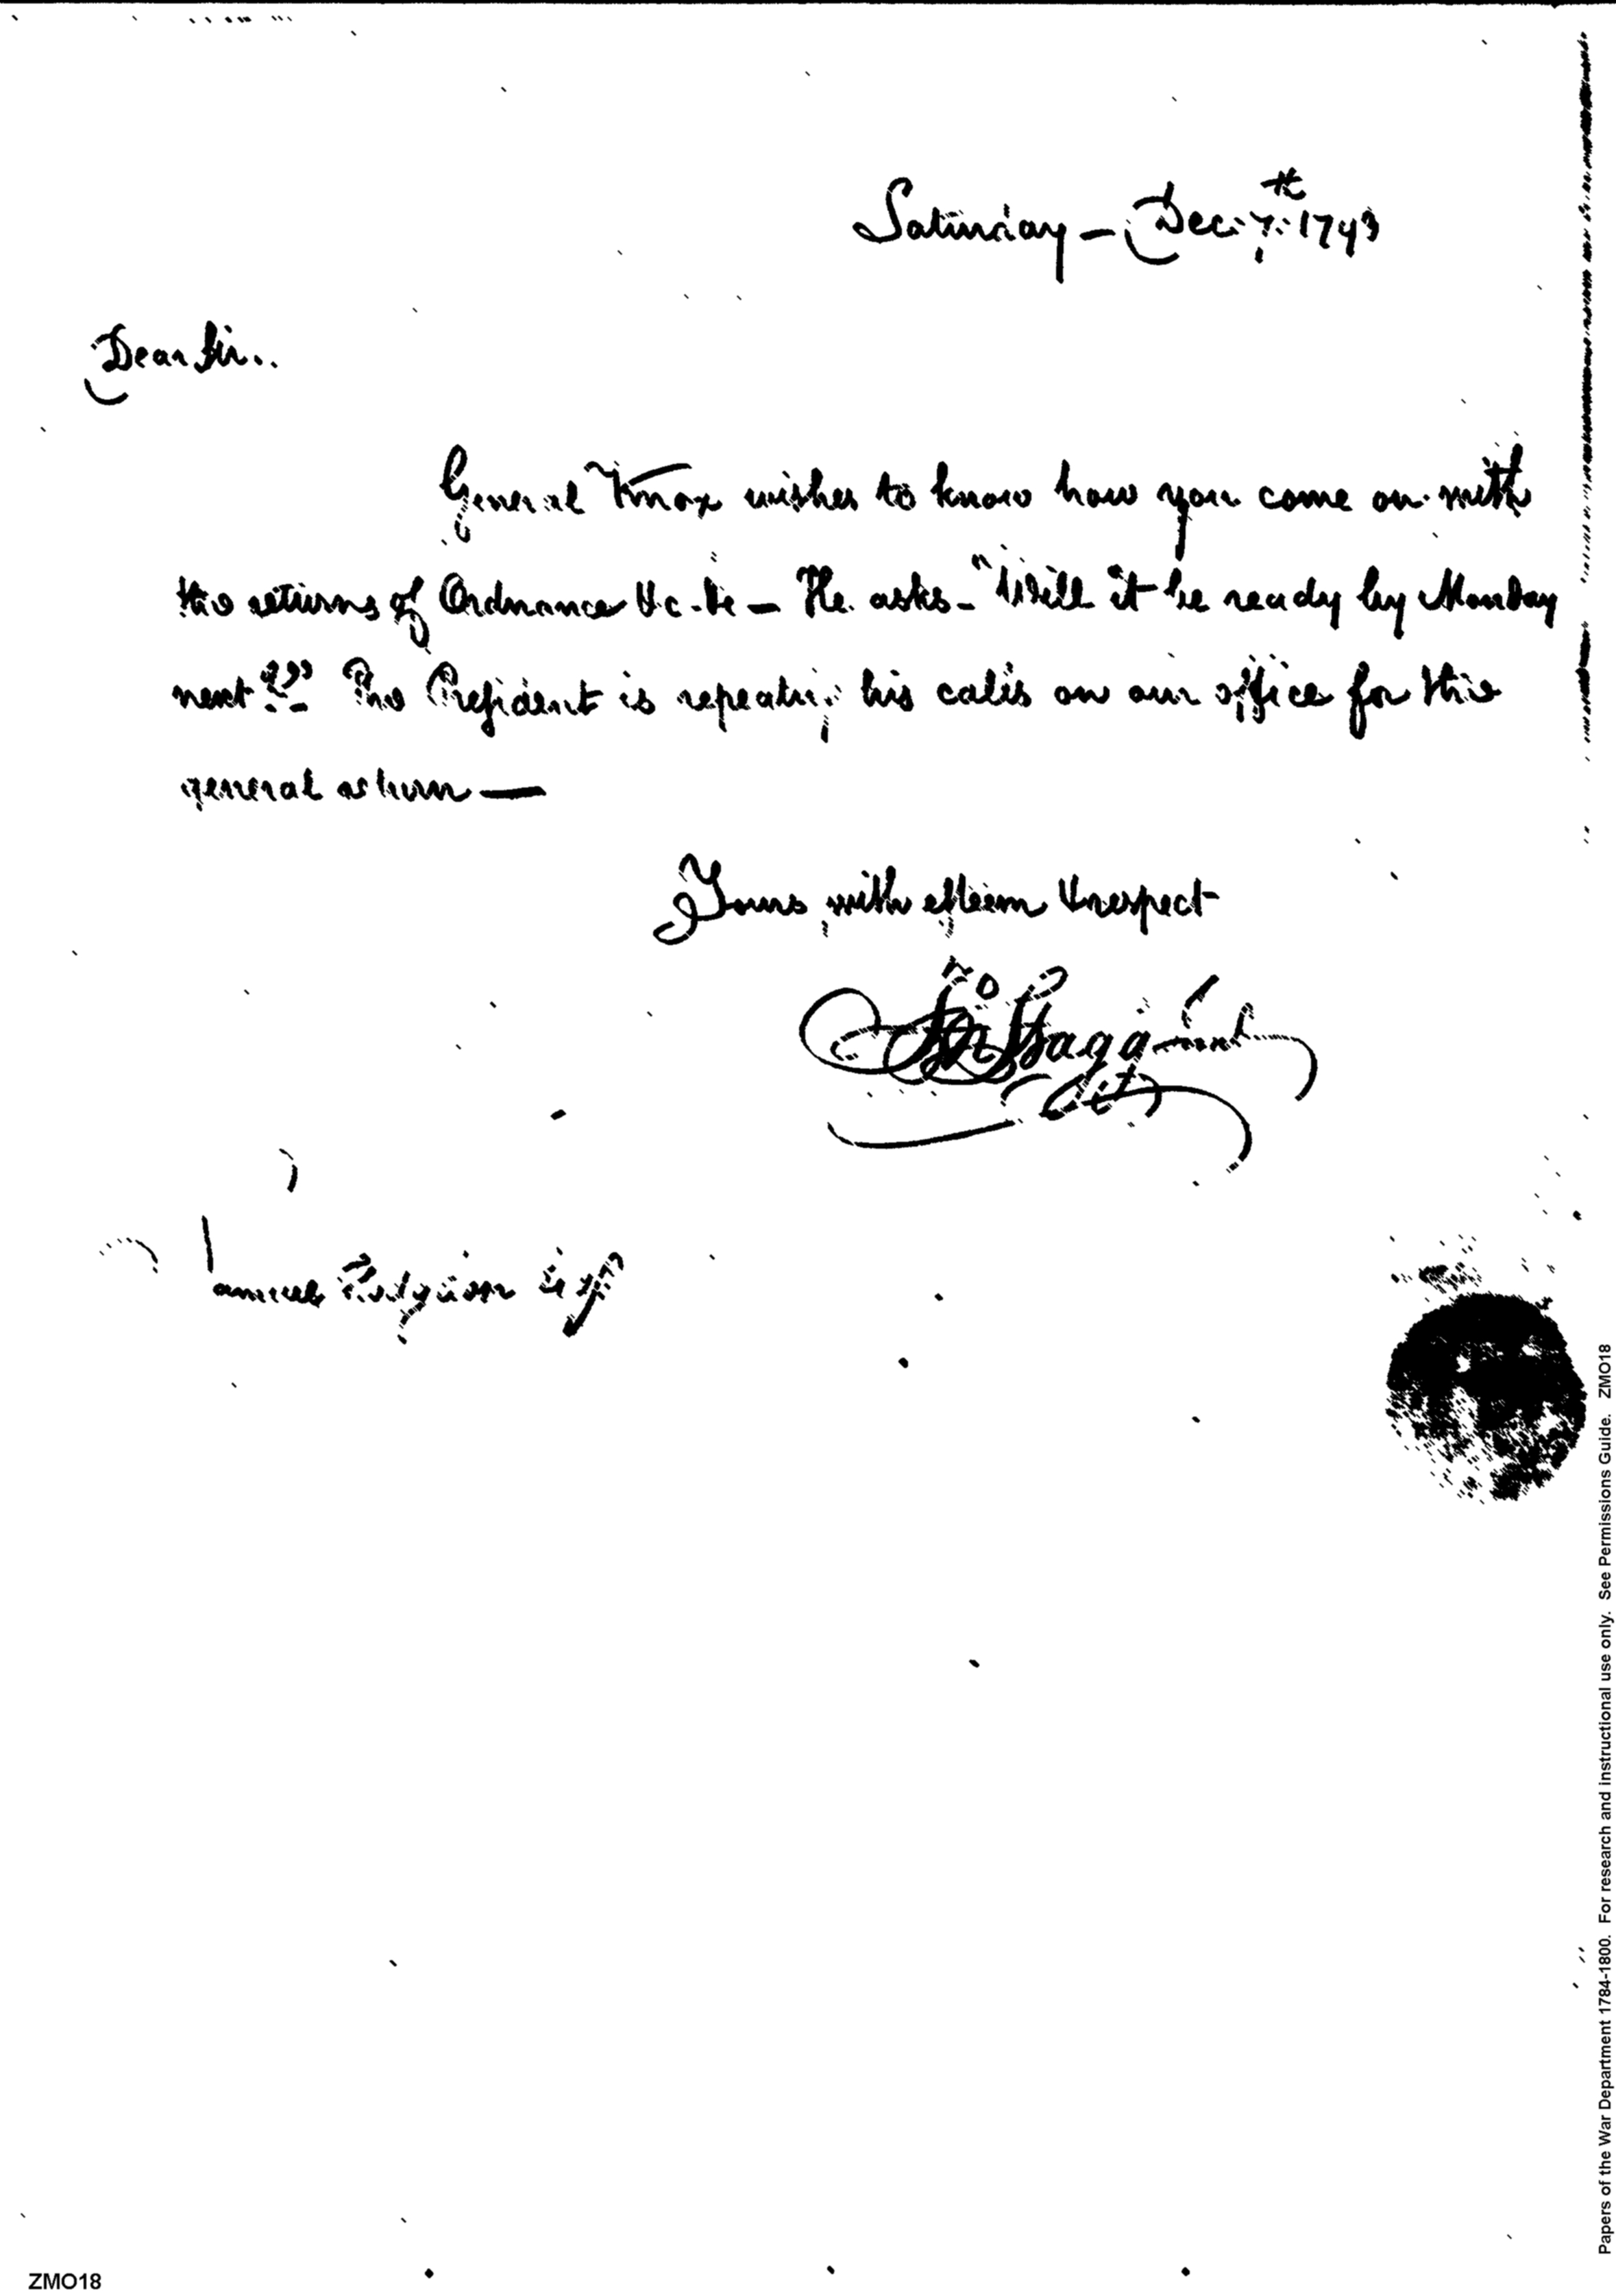 Saturday - Dec: 7th: 1793
Dear Sir..
General Knox wishes to know how you come on with
the returns of Ordnance &c. &c - He asks - "Will it be ready by Monday
next??" The President is repeating his calls on our office for the
general return —
Yours with esteem & respect
Jno Stagg Jun
Samuel Hodgdon Esqr
Papers of the War Department 1784-1800. For research and instructional use only. See Permissions Guide. ZMO18
ZMO18